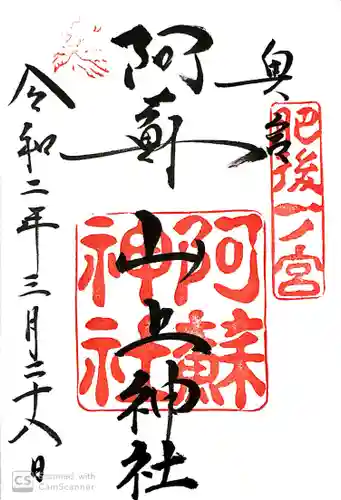 奥宮
肥後一ノ宮
阿蘇山上神社
阿蘇神社
令和二年三月二十八日
CS Scanned with
CamScanner